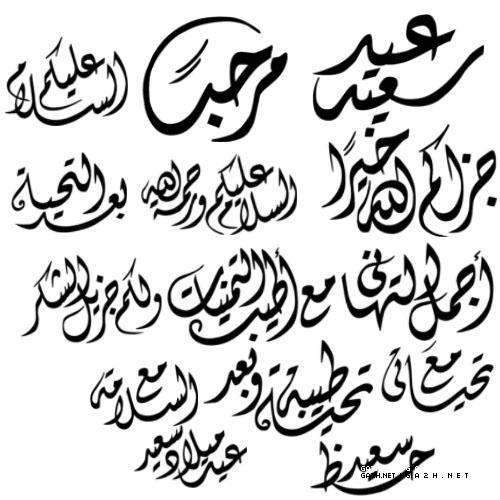 عيد سعيد
مرحباً
السلام عليكم
جزاكم الله خيرًا
السلام عليكم ورحمة الله
بعد التحية
أجمل التهاني
مع أطيب التمنيات
ولكم جزيل الشكر
مع تحياتي
تحية طيبة وبعد
مع السلامة
حظ سعيد
عيد ميلاد سعيد
GASH.NET
GA2H.NET